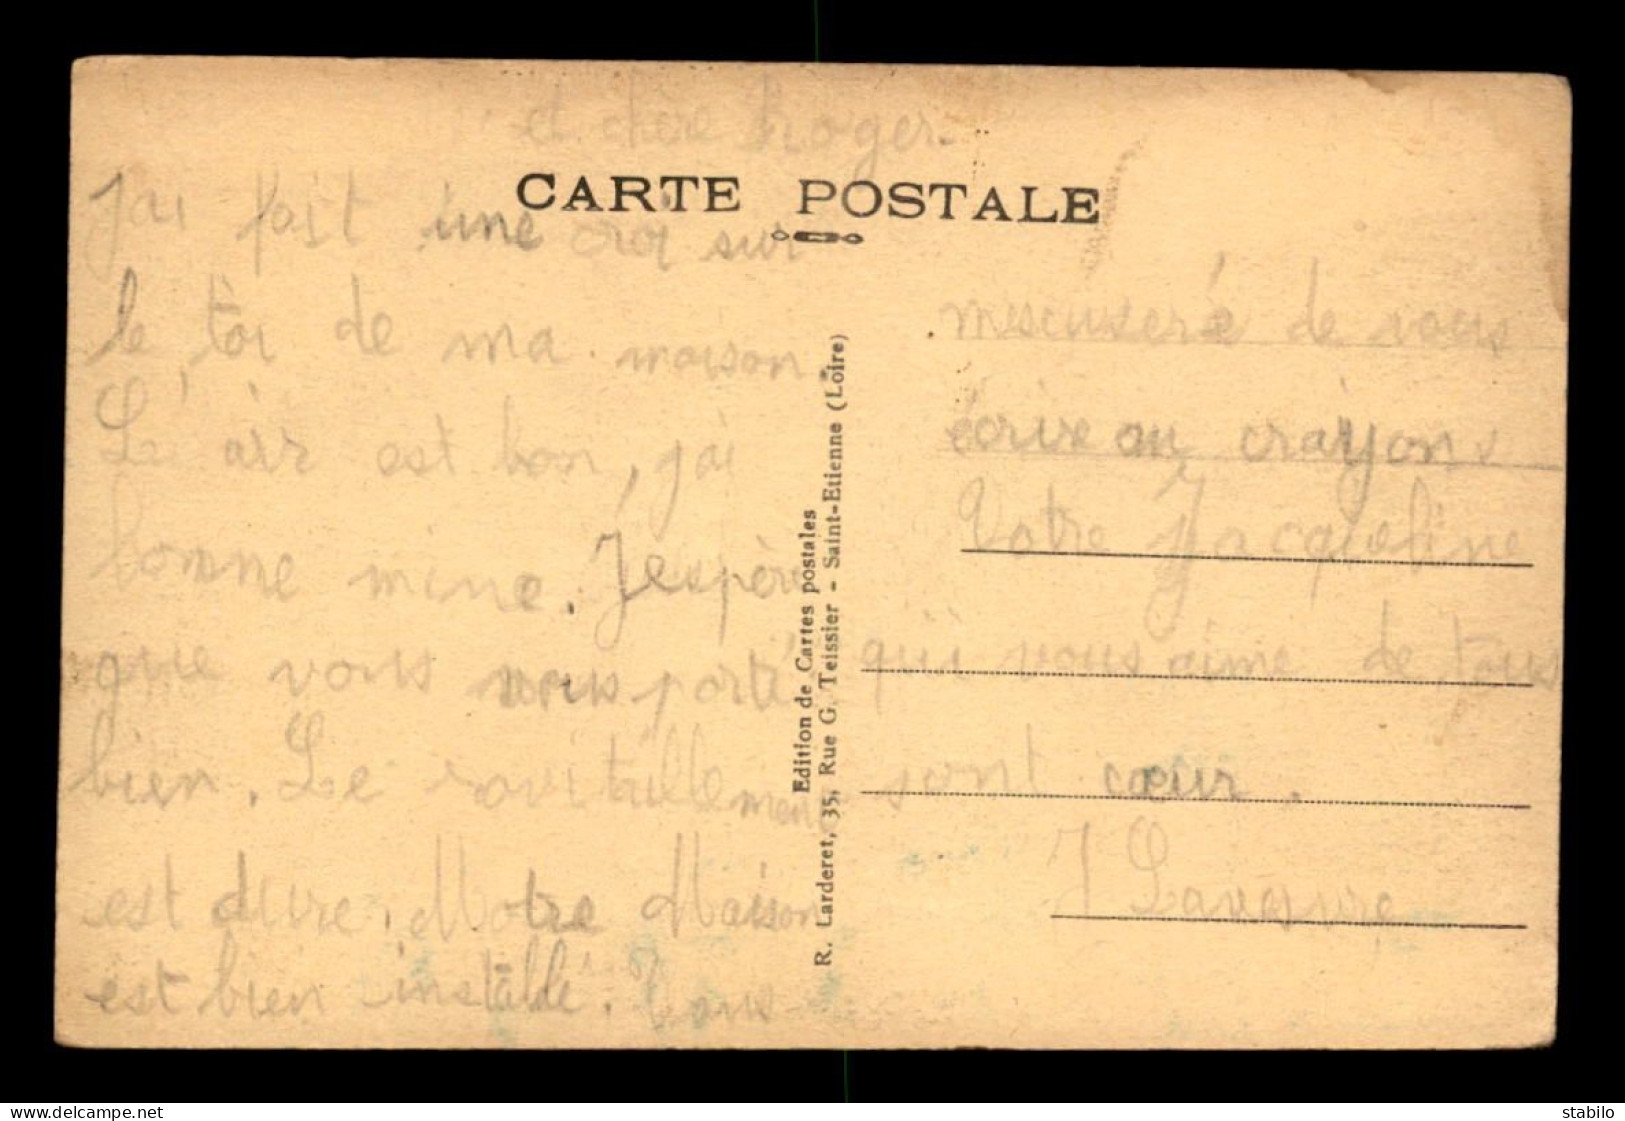 et chère Roger.
CARTE POSTALE
J'ai fait une croi sur
le toi de ma maison.
Le' air est bon, j'ai
bonne mine. J'espère
que vous vous porté
bien. Le ravitaillement
est dure. Notre Maison
est bien installé. Vous
Edition de Cartes postales
R. Larderet, 35, Rue G. Teissier - Saint-Etienne (Loire)
m'escuseré de vous
écrire au crayon
Votre Jacqueline
qui vous aime de tous
sont cœur.
J
stabilo